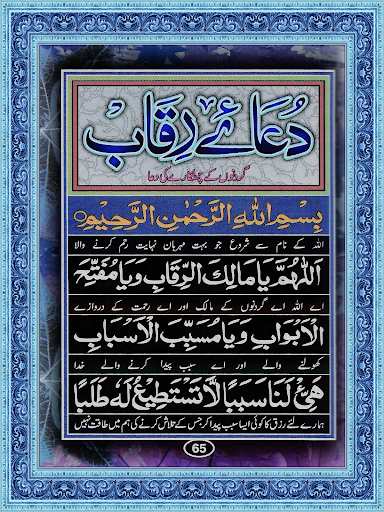 دُعَائے رِقَاب
گردنوں کے چھٹکارے کی دعا
بِسْمِ اللّٰهِ الرَّحْمٰنِ الرَّحِيْمِ
اللہ کے نام سے شروع جو بہت مہربان نہایت رحم کرنے والا
اَللّٰهُمَّ يَا مَالِكَ الرِّقَابِ وَيَا مُفَتِّحَ
اے اللہ اے گردنوں کے مالک اور اے رحمت کے دروازے
الْاَبْوَابِ وَيَا مُسَبِّبَ الْاَسْبَابِ
کھولنے والے اور اے سبب پیدا کرنے والے خدا
هَيِّئْ لَنَا سَبَبًا لَّا نَسْتَطِيْعُ لَهٗ طَلَبًا
ہمارے لئے رزق کا کوئی ایسا سبب پیدا کر جس کے تلاش کرنے کی ہم میں طاقت نہیں
65